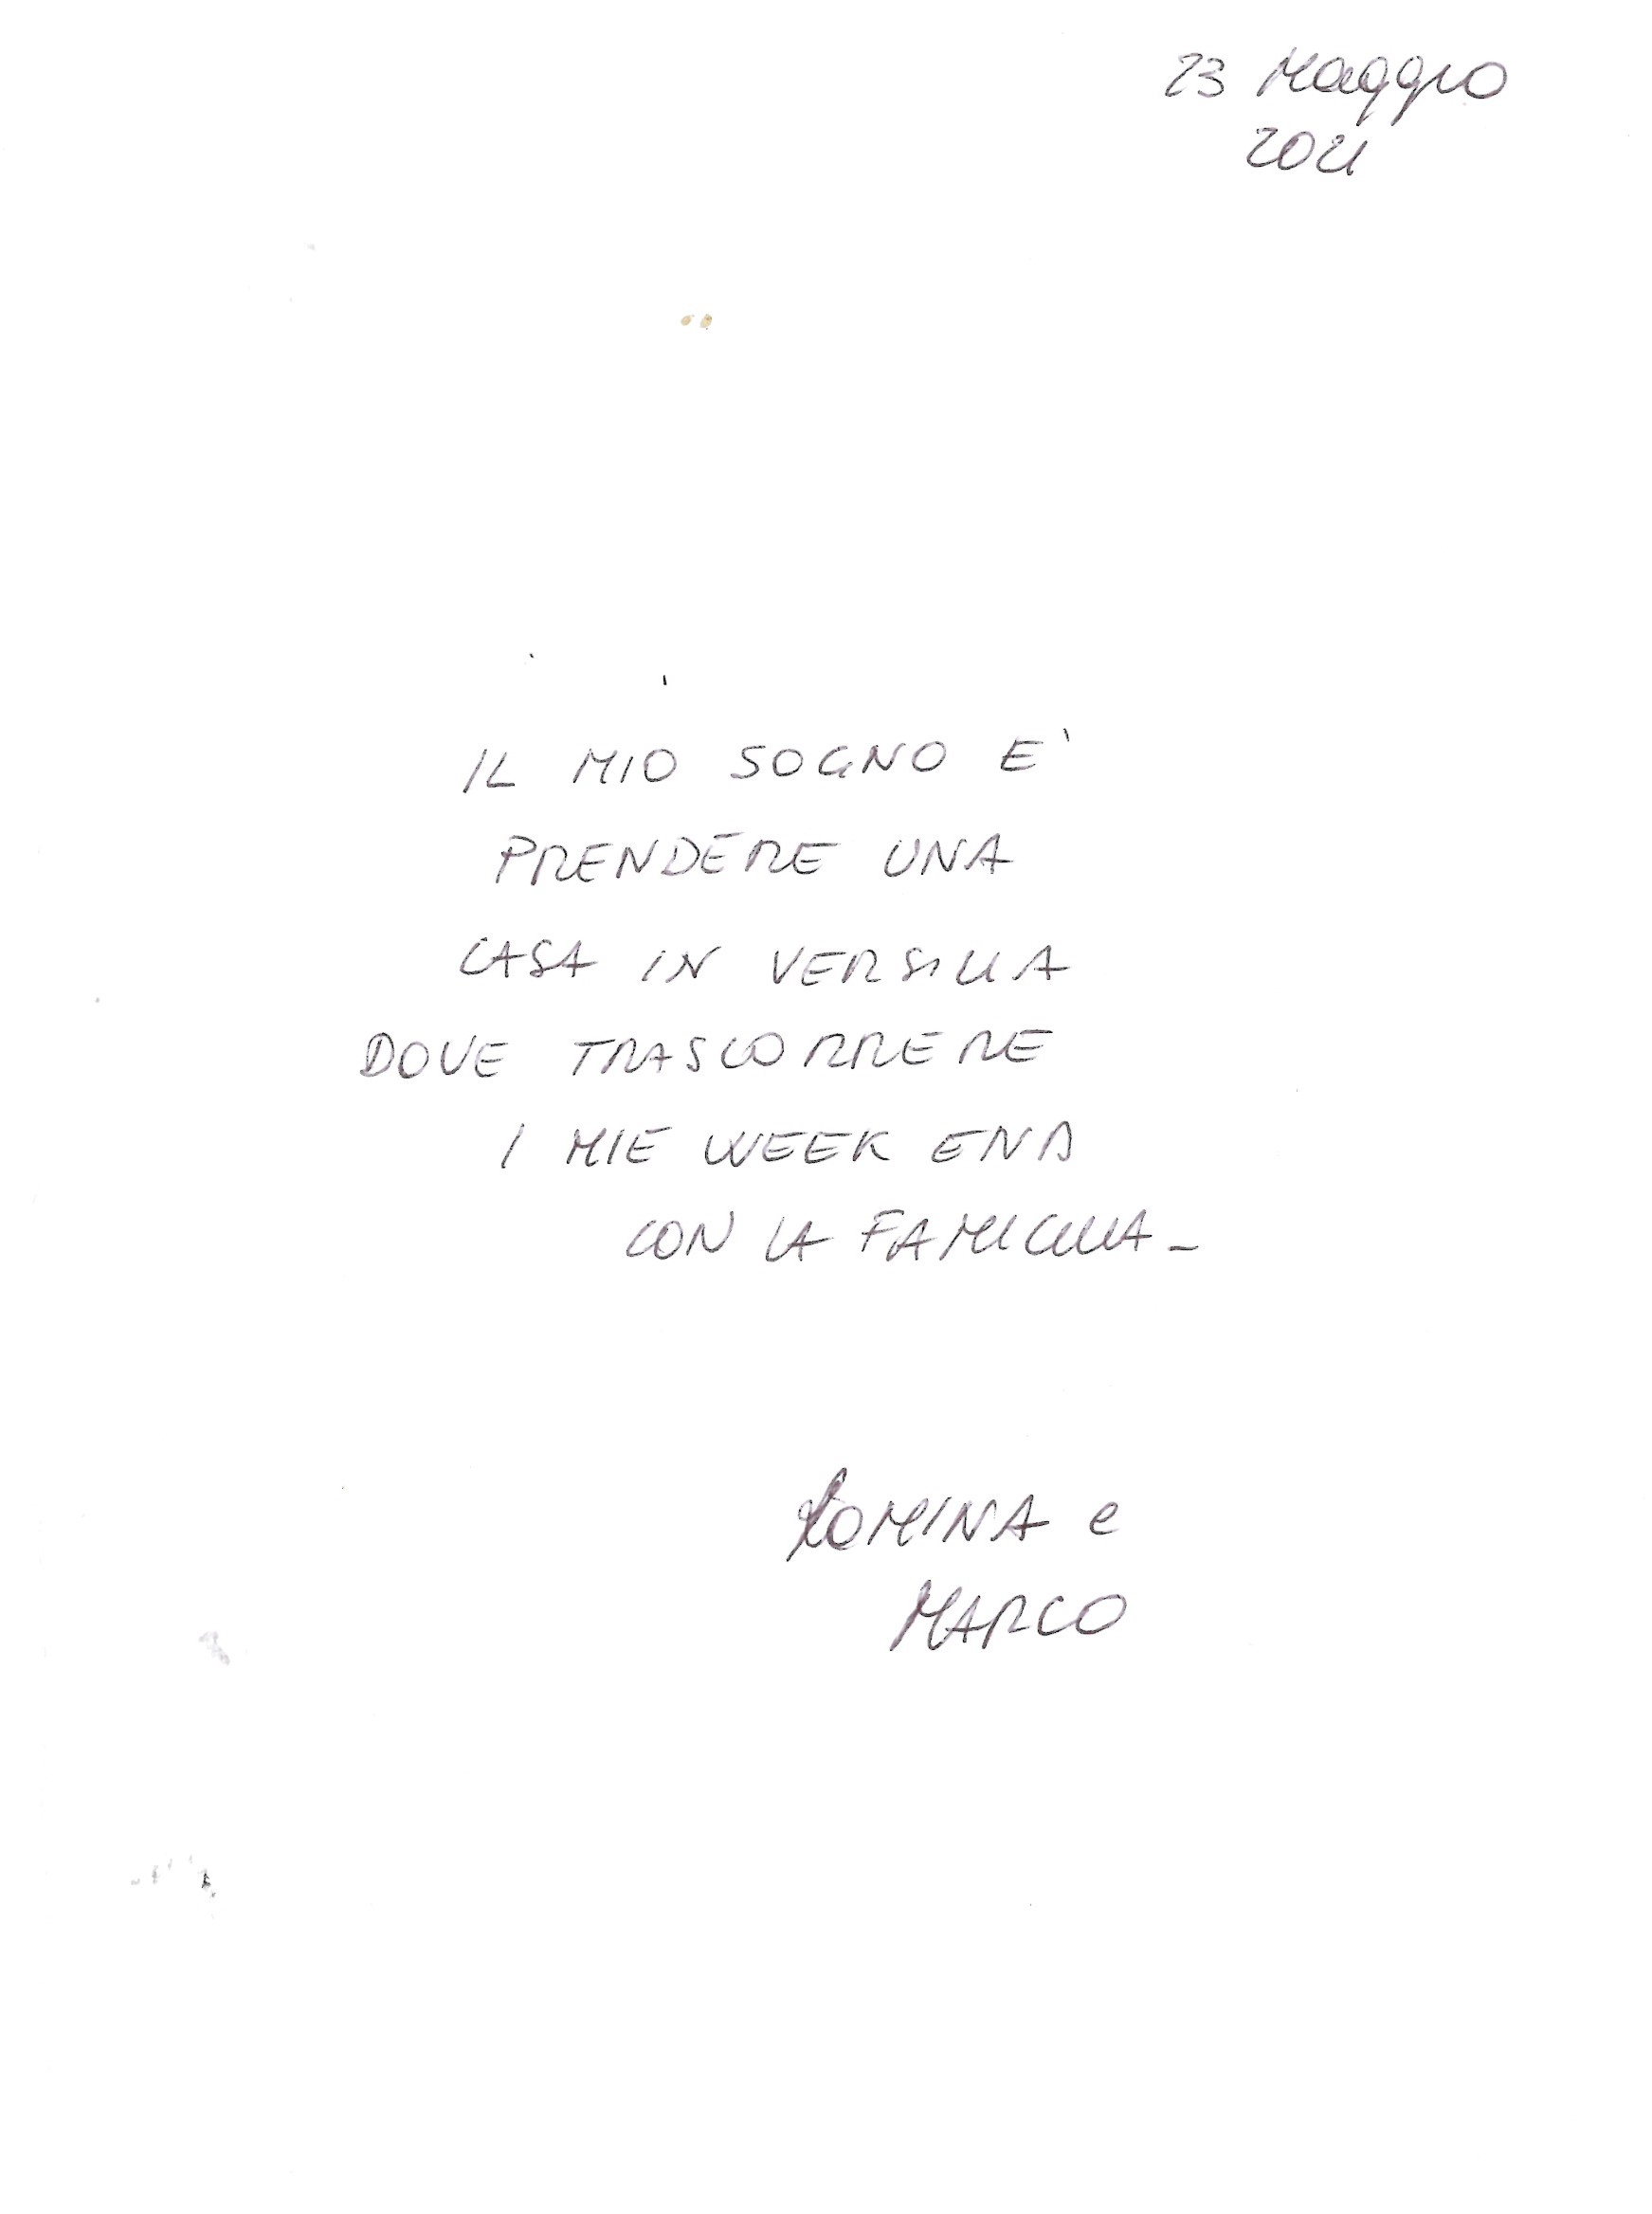 23 Maggio
2021
IL MIO SOGNO E'
PRENDERE UNA
CASA IN VERSILIA
DOVE TRASCORRERE
I MIE WEEK END
CON LA FAMIGLIA -
ROMINA e
MARCO